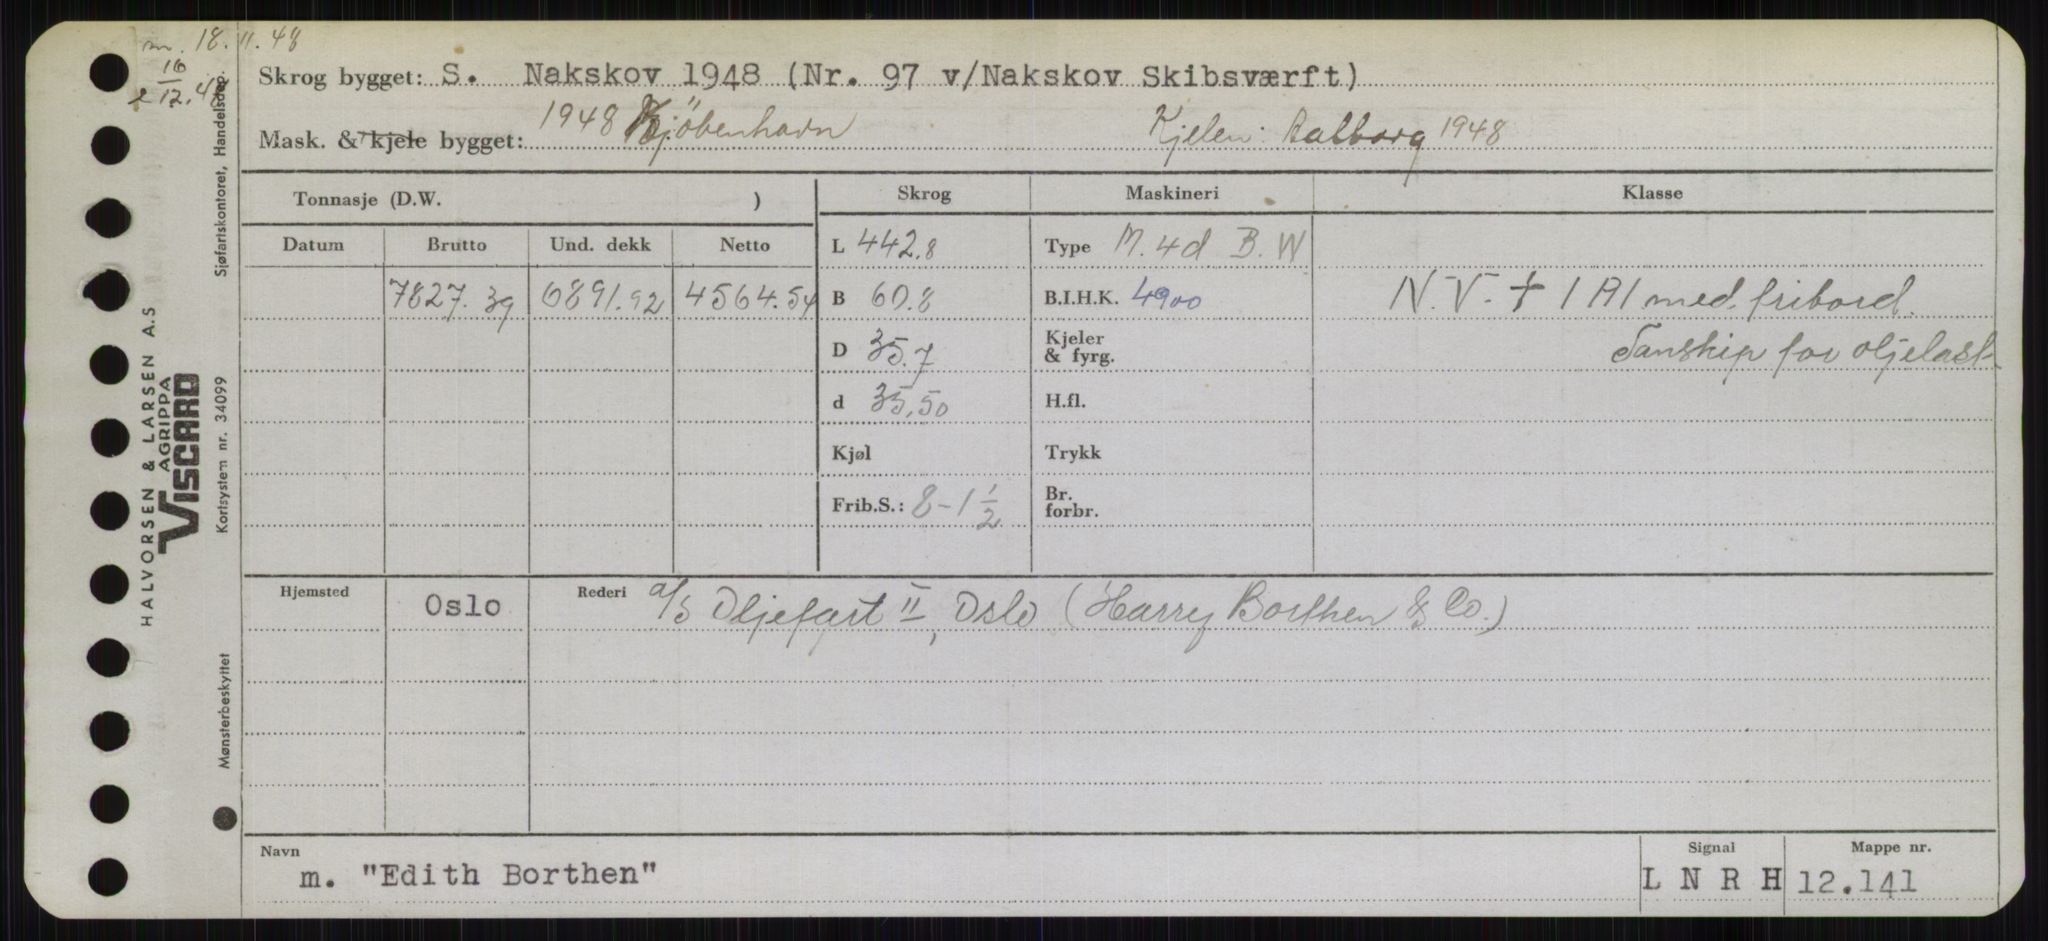 m. 18.11.48
16
12.48
Skrog bygget: S. Nakskov 1948 (Nr. 97 v/Nakskov Skibsværft)
Mask. & kjele bygget: 1948 Kjöbenhavn Kjelen: Aalborg 1948
Tonnasje (D.W. ) Skrog Maskineri Klasse
Datum Brutto Und. dekk Netto L 442.8 Type M. 4d B. W
7827.39 6891.92 4564.54 B 60.8 B.I.H.K. 4900 N.V. + 1A1 med fribord.
D 35.7 Kjeler & fyrg. Tanship for oljelast
d 35.50 H.fl.
Kjøl Trykk
Frib.S.: 8-1 1/2 Br. forbr.
Hjemsted Oslo Rederi a/s Oljefart II, Oslo (Harry Borthen & Co.)
Navn Signal Mappe nr.
m. "Edith Borthen" L N R H 12.141
HALVORSEN & LARSEN A.S
AGRIPPA
VISCARD
Mønsterbeskyttet Kortsystem nr. 34099 Sjøfartskontoret, Handelsdep.